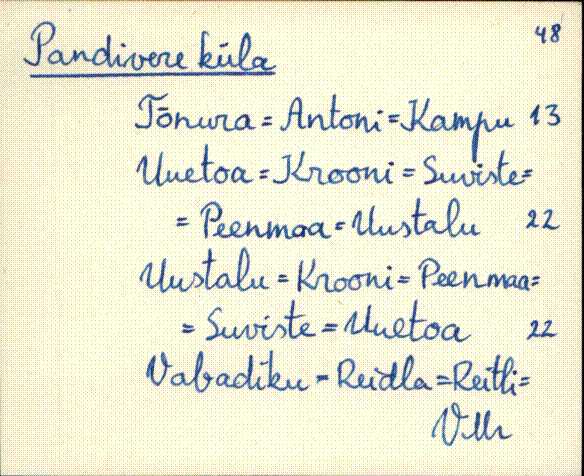 48
Pandivere küla
Tõnura = Antoni = Kampu 13
Uuetoa = Krooni = Suviste =
= Peenmaa = Uustalu 22
Uustalu = Krooni = Peenmaa =
= Suviste = Uuetoa 22
Vabadiku = Reidla = Reitli =